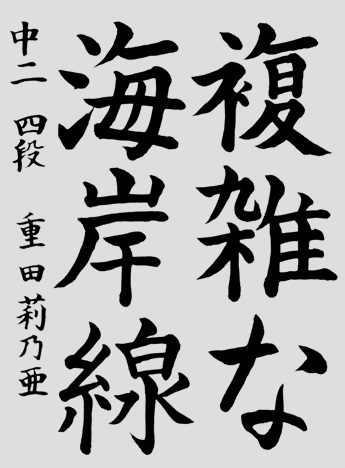 複雑な
海岸線
中二 四段 重田莉乃亜